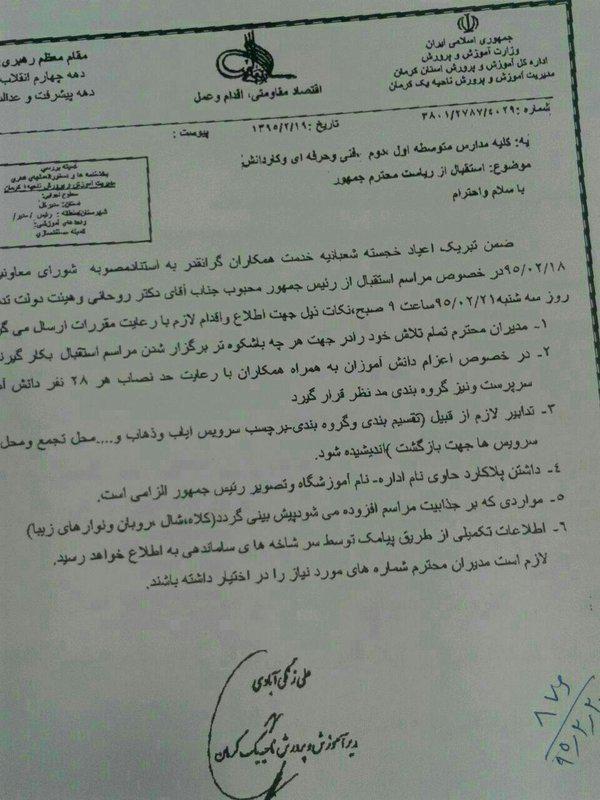 جمهوری اسلامی ایران
وزارت آموزش و پرورش
اداره کل آموزش و پرورش استان کرمان
مدیریت آموزش و پرورش ناحیه یک کرمان
اقتصاد مقاومتی، اقدام و عمل
مقام معظم رهبری
دهه چهارم انقلاب
دهه پیشرفت و عدالت
شماره :۳۸۰۱/۲۷۸۷/۴۰۲۹
تاریخ :۱۳۹۵/۲/۱۹
پیوست :
کمیته بررسی
بخشنامه ها و دستورالعملهای
مدیریت آموزش و پرورش ناحیه۱ کرمان
سطوح اجرایی:
استان: مدیرکل
شهرستان/منطقه : رئیس /مدیر/
واحدهای آموزشی:
کمیته
به: کلیه مدارس متوسطه اول ،دوم ،فنی وحرفه ای وکاردانش
موضوع: استقبال از ریاست محترم جمهور
با سلام واحترام
ضمن تبریک اعیاد خجسته شعبانیه خدمت همکاران گرانقدر به استنادمصوبه شورای معاونین
۹۵/۰۲/۱۸در خصوص مراسم استقبال از رئیس جمهور محبوب جناب آقای دکتر روحانی وهیئت دولت
روز سه شنبه۹۵/۰۲/۲۱ساعت ۹ صبح،نکات ذیل جهت اطلاع واقدام لازم با رعایت مقررات ارسال می
۱- مدیران محترم تمام تلاش خود رادر جهت هر چه باشکوه تر برگزار شدن مراسم استقبال بکار گیرند
۲- در خصوص اعزام دانش آموزان به همراه همکاران با رعایت حد نصاب هر ۲۸ نفر دانش
سرپرست ونیز گروه بندی مد نظر قرار گیرد
۳- تدابیر لازم از قبیل (تقسیم بندی وگروه بندی-برچسب سرویس ایاب وذهاب و....محل تجمع ومحل
سرویس ها جهت بازگشت )اندیشیده شود.
۴- داشتن پلاکارد حاوی نام اداره- نام آموزشگاه وتصویر رئیس جمهور الزامی است.
۵- مواردی که بر جذابیت مراسم افزوده می شودپیش بینی گردد(کلاه،شال ،روبان ونوارهای زیبا)
۶- اطلاعات تکمیلی از طریق پیامک توسط سر شاخه ها ی ساماندهی به اطلاع خواهد رسید.
لازم است مدیران محترم شماره های مورد نیاز را در اختیار داشته باشند.
علی زنگی آبادی
مدیر آموزش و پرورش ناحیه یک کرمان